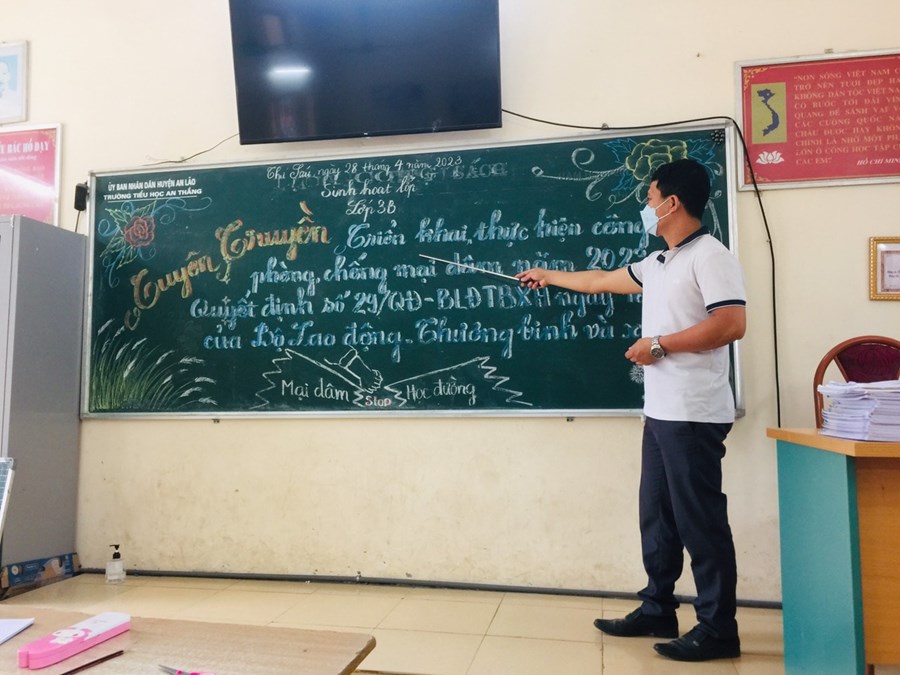 ỦY BAN NHÂN DÂN HUYỆN AN LÃO
TRƯỜNG TIỂU HỌC AN THẮNG
Thứ Sáu, ngày 28 tháng 4 năm 2023
Sinh hoạt lớp
Lớp 3B
Tuyên Truyền
Triển khai, thực hiện công
phòng, chống mại dâm năm 2023
Quyết định số 29/QĐ-BLĐTBXH ngày
của Bộ Lao động - Thương binh và
Mại dâm
Stop
Học đường
"NON SÔNG VIỆT NAM
TRỞ NÊN TƯƠI ĐẸP HA
KHÔNG DÂN TỘC VIỆT NA
CÓ BƯỚC TỚI ĐÀI VIN
QUANG ĐỂ SÁNH VAI V
CÁC CƯỜNG QUỐC NĂ
CHÂU ĐƯỢC HAY KHÔN
CHÍNH LÀ NHỜ MỘT PH
LỚN Ở CÔNG HỌC TẬP C
CÁC EM!"
HỒ CHÍ MINH
BÁC HỒ DẠY